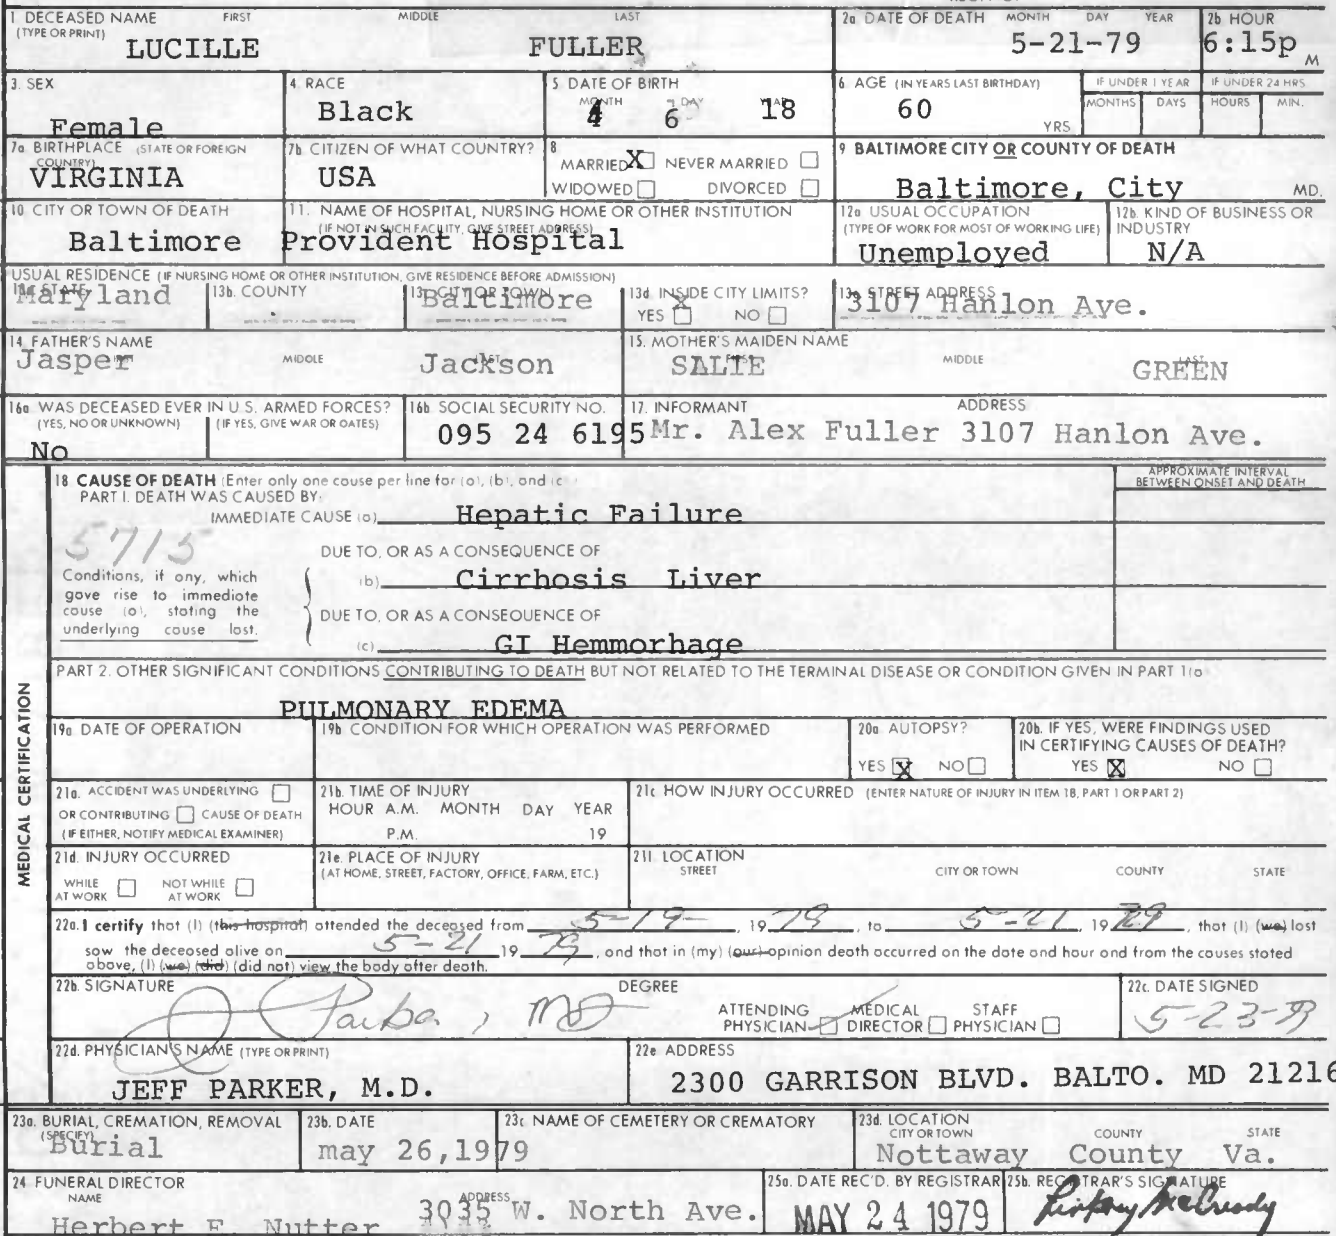 1 DECEASED NAME (TYPE OR PRINT) FIRST MIDDLE LAST
LUCILLE FULLER
2a DATE OF DEATH MONTH DAY YEAR
5-21-79
2b HOUR
6:15p M
3. SEX
Female
4. RACE
Black
5 DATE OF BIRTH
MONTH DAY YEAR
4 6 18
6 AGE (IN YEARS LAST BIRTHDAY)
60 YRS
IF UNDER 1 YEAR
MONTHS DAYS
IF UNDER 24 HRS
HOURS MIN.
7a BIRTHPLACE (STATE OR FOREIGN COUNTRY)
VIRGINIA
7b CITIZEN OF WHAT COUNTRY?
USA
8
MARRIED X NEVER MARRIED
WIDOWED DIVORCED
9 BALTIMORE CITY OR COUNTY OF DEATH
Baltimore, City MD.
10 CITY OR TOWN OF DEATH
Baltimore
11. NAME OF HOSPITAL, NURSING HOME OR OTHER INSTITUTION
(IF NOT IN SUCH FACILITY, GIVE STREET ADDRESS)
Provident Hospital
12a USUAL OCCUPATION
(TYPE OF WORK FOR MOST OF WORKING LIFE)
Unemployed
12b. KIND OF BUSINESS OR INDUSTRY
N/A
USUAL RESIDENCE (IF NURSING HOME OR OTHER INSTITUTION, GIVE RESIDENCE BEFORE ADMISSION)
13a STATE
Maryland
13b. COUNTY
13c CITY OR TOWN
Baltimore
13d INSIDE CITY LIMITS?
YES X NO
13e STREET ADDRESS
3107 Hanlon Ave.
14 FATHER'S NAME
MIDDLE LAST
Jasper Jackson
15. MOTHER'S MAIDEN NAME
MIDDLE LAST
SALTE GREEN
16a WAS DECEASED EVER IN U.S. ARMED FORCES?
(YES, NO OR UNKNOWN) (IF YES, GIVE WAR OR DATES)
No
16b SOCIAL SECURITY NO.
095 24 6195
17. INFORMANT ADDRESS
Mr. Alex Fuller 3107 Hanlon Ave.
MEDICAL CERTIFICATION
18 CAUSE OF DEATH (Enter only one cause per line for (a), (b), and (c
APPROXIMATE INTERVAL BETWEEN ONSET AND DEATH
PART I. DEATH WAS CAUSED BY:
IMMEDIATE CAUSE (a) Hepatic Failure
5715
DUE TO, OR AS A CONSEQUENCE OF
Conditions, if any, which gave rise to immediate cause (a), stating the underlying cause last.
(b) Cirrhosis Liver
DUE TO, OR AS A CONSEQUENCE OF
(c) GI Hemmorhage
PART 2. OTHER SIGNIFICANT CONDITIONS CONTRIBUTING TO DEATH BUT NOT RELATED TO THE TERMINAL DISEASE OR CONDITION GIVEN IN PART 1(a)
PULMONARY EDEMA
19a DATE OF OPERATION
19b CONDITION FOR WHICH OPERATION WAS PERFORMED
20a AUTOPSY?
YES X NO
20b. IF YES, WERE FINDINGS USED IN CERTIFYING CAUSES OF DEATH?
YES X NO
21a. ACCIDENT WAS UNDERLYING
OR CONTRIBUTING CAUSE OF DEATH
(IF EITHER, NOTIFY MEDICAL EXAMINER)
21b. TIME OF INJURY
HOUR A.M. MONTH DAY YEAR
P.M. 19
21c HOW INJURY OCCURRED (ENTER NATURE OF INJURY IN ITEM 18, PART 1 OR PART 2)
21d. INJURY OCCURRED
WHILE AT WORK NOT WHILE AT WORK
21e. PLACE OF INJURY
(AT HOME, STREET, FACTORY, OFFICE, FARM, ETC.)
21f LOCATION
STREET CITY OR TOWN COUNTY STATE
22a. I certify that (I) (this hospital) attended the deceased from 5-19- , 19 79 , to 5-21 , 19 79 , that (I) (we) last
saw the deceased alive on 5-21 19 79 , and that in (my) (our) opinion death occurred on the date and hour and from the causes stated
above, (I) (we) (did) (did not) view the body after death.
22b. SIGNATURE DEGREE
J Parker, MD
ATTENDING PHYSICIAN MEDICAL DIRECTOR STAFF PHYSICIAN
22c. DATE SIGNED
5-23-79
22d. PHYSICIAN'S NAME (TYPE OR PRINT)
JEFF PARKER, M.D.
22e ADDRESS
2300 GARRISON BLVD. BALTO. MD 21216
23a. BURIAL, CREMATION, REMOVAL (SPECIFY)
Burial
23b. DATE
may 26,1979
23c NAME OF CEMETERY OR CREMATORY
23d. LOCATION
CITY OR TOWN COUNTY STATE
Nottaway County Va.
24 FUNERAL DIRECTOR
NAME ADDRESS
Herbert E. Nutter 3035 W. North Ave.
25a. DATE REC'D. BY REGISTRAR
MAY 24 1979
25b. REGISTRAR'S SIGNATURE
McCready